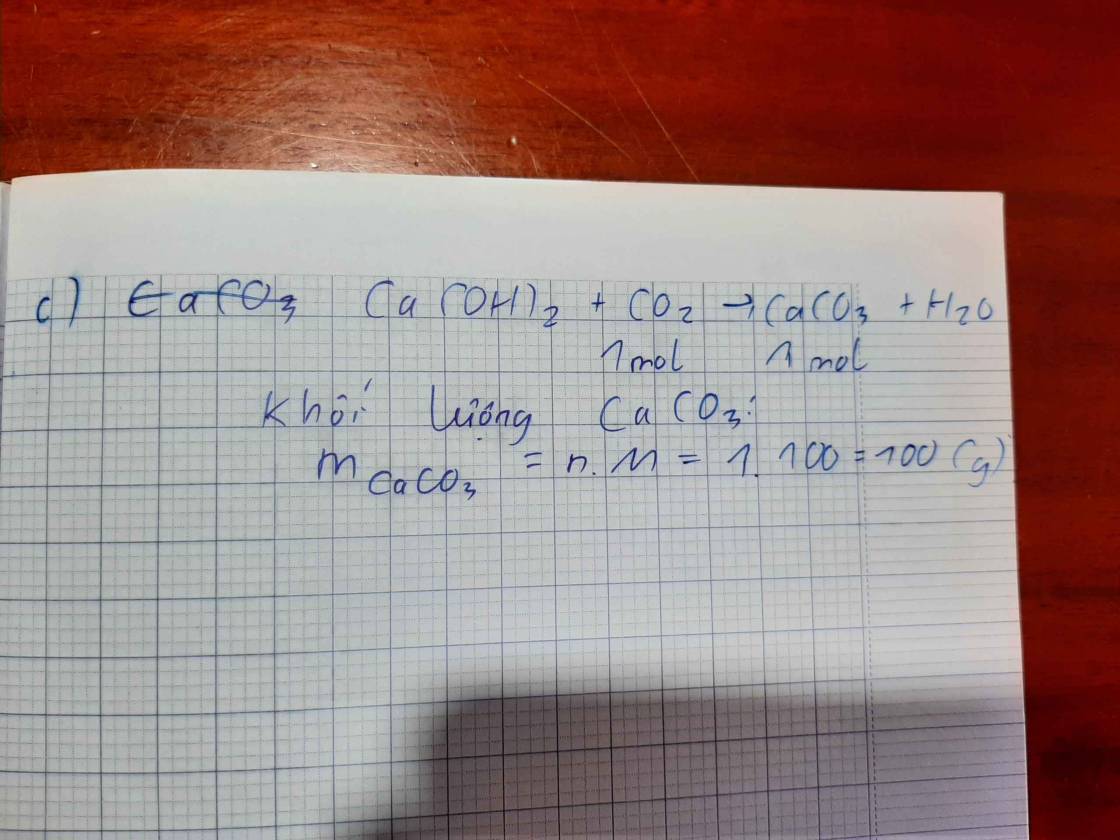 c) CaCO₃ Ca(OH)₂ + CO₂ → CaCO₃ + H₂O
1 mol 1 mol
Khối lượng CaCO₃:
m CaCO₃ = n. M = 1. 100 = 100 (g)